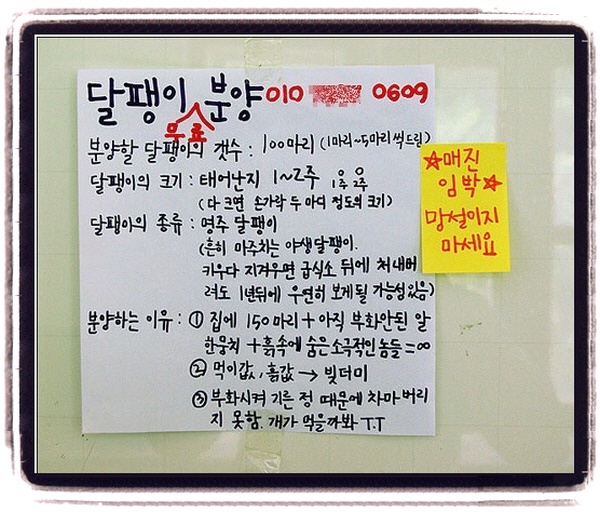 달팽이 무료 분양 010 0609
분양할 달팽이의 갯수 : 100마리 (1마리~5마리씩드림)
달팽이의 크기 : 태어난지 1~2주 1주 2주
(다 크면 손가락 두 마디 정도의 크기)
달팽이의 종류 : 명주 달팽이
(흔히 마주치는 야생달팽이.
키우다 지겨우면 급식소 뒤에 쳐내버
려도 1년뒤에 우연히 보게될 가능성있음)
분양하는 이유 : ① 집에 150마리 + 아직 부화안된 알
한뭉쳐 + 흙속에 숨은소극적인놈들 = ∞
② 먹이값, 흙값 → 빚더미
③ 부화시켜 기른 정 때문에 차마 버리
지 못함. 개가 먹을까봐 T.T
☆매진
임박☆
망설이지
마세요